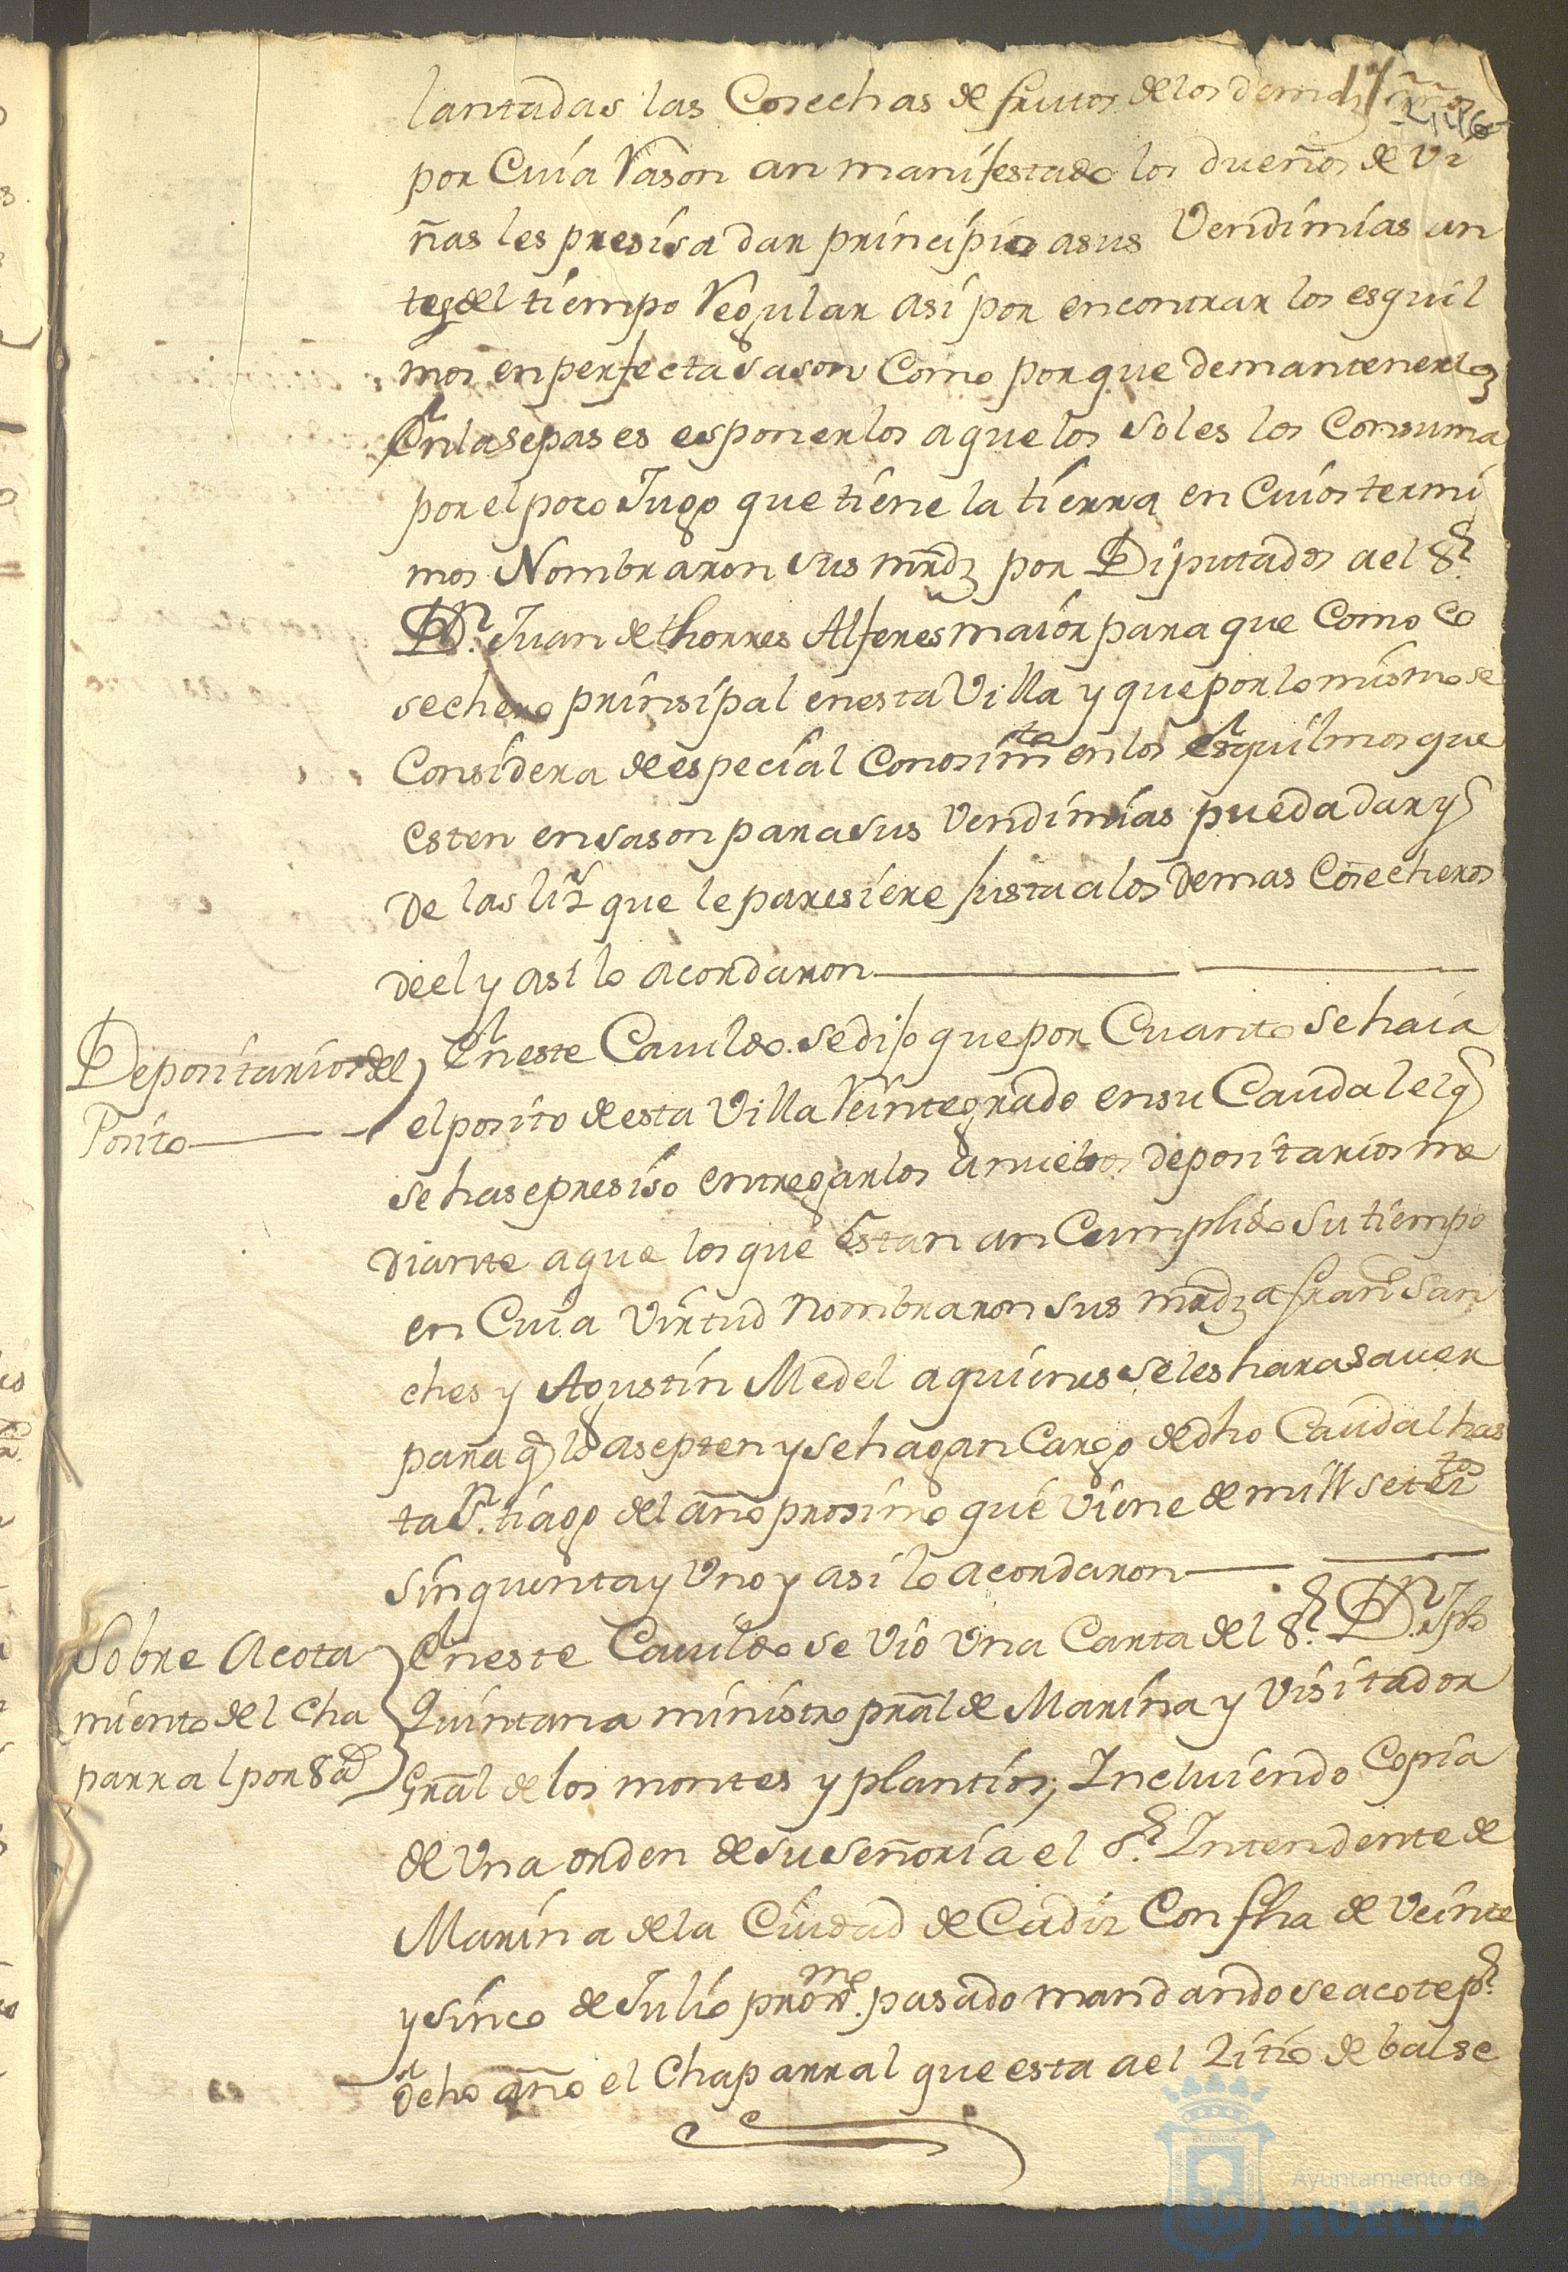 lantadas las Cosechas de frutos de los demas años
por Cuia Rason an manifestado los dueños de Vi
ñas les presisa dar principio asus Vendimias an
tes del tiempo Regular asi por encontrar los esquil
mos en perfecta sason Como por que de mantenerlos
En las sepas es esponerlos a que los soles los Consuma
por el poco Jugo que tiene la tierra en Cuios termi
nos Nombraron sus mrdz por Diputados a el Sr
Dn. Juan de thorres Alferes maior para que Como Co
sechero prinsipal en esta Villa y que por lo mismo se
Considera de especial Conosimto en los Esquilmos que
esten en sason para sus Vendimias pueda dar y
De las liz que le paresiere Justa a los Demas Cosecheros
de el y asi lo acordaron
Depositarios del
Posito
En este Cauildo se dijo que por Cuanto se haia
el posito de esta Villa Reintegrado en su Caudal el q
se hase presiso entregarlos a nuebos depositarios me
diante a que los que Estan an Cumplido su tiempo
en Cuia Virtud nombraron sus mrdz a fran San
ches y Agustin Medel a quienes se les hara sauer
para q lo asepten y se hagan Cargo de dho Caudal has
ta Sn.tiago del año prosimo que viene de mill setetos
sinquenta y Uno y asi lo acordaron
Sobre Acota
miento del Cha
parral por Sd
En este Cauildo se vio Una Carta del Sr. Dn. Jph
Quintana ministro pral de Marina y Visitador
Gral de los montes y plantios, Incluiendo Copia
de Una orden de su señoria el Sr. Intendente de
Marina de la Ciudad de Cadiz Con fha de Veinte
y sinco de Julio proximo. pasado mandando se acote pr.
dcho año el Chaparral que esta a el Zitio de balse
Ayuntamiento de
HUELVA